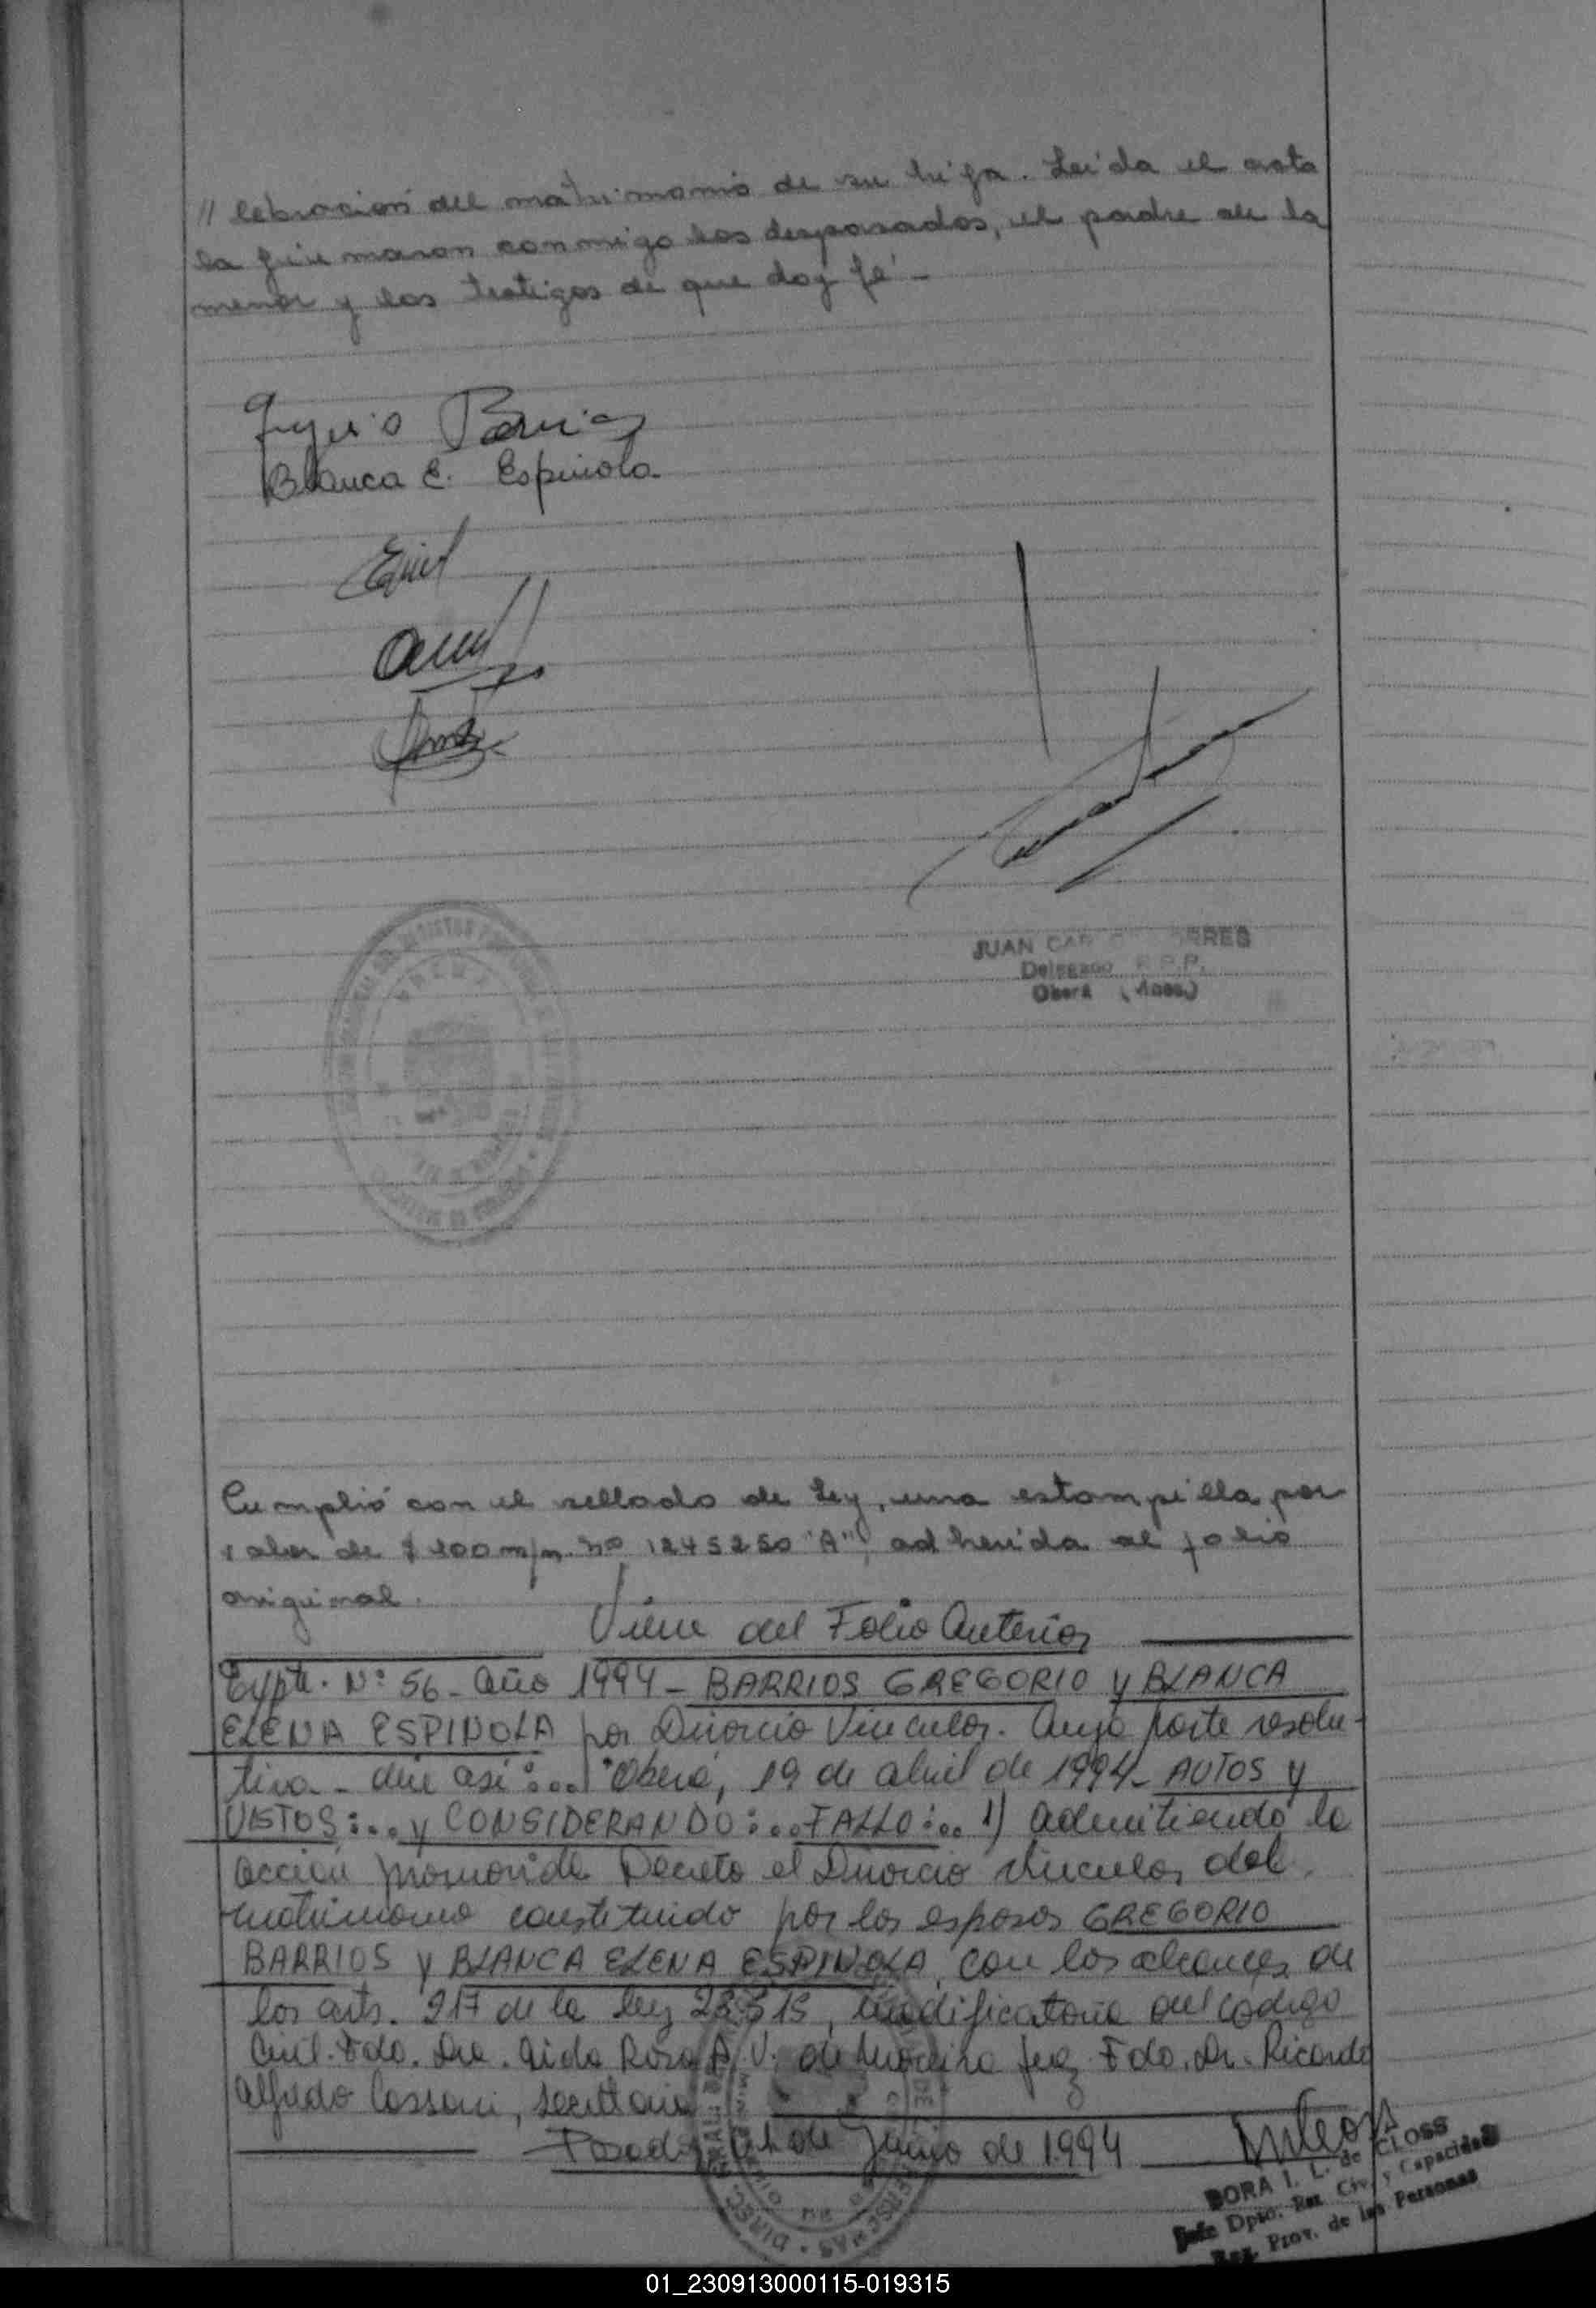 // lebracion del matrimonio de su hija. Leida el acta
la firmaron conmigo los desposados, el padre de la
menor y los testigos de que doy fé -
Gregorio Barrios
Blanca E. Espinola
JUAN
Delegado R.P.P.
Oberá (Mnes.)
Cumplió con el sellado de Ley, una estampilla por
valor de $ 100 m/n. no 1245250 "A", adherida al folio
original.
Viene del Folio Anterior
Expte. Nº 56 - Año 1994 - BARRIOS GREGORIO y BLANCA
ELENA ESPINOLA por Divorcio Vincular. Cuya parte resolu-
tiva - dice así:... "Oberá, 19 de abril de 1994 - AUTOS y
VISTOS:... y CONSIDERANDO:... FALLO:... 1) Admitiendo la
acción promovida Decreto el Divorcio vincular del
matrimonio constituido por los esposos GREGORIO
BARRIOS y BLANCA ELENA ESPINOLA, con los alcances de
los arts. 217 de la ley 23.515, modificatoria del código
Civil. Fdo. Dra. Aida Rosa A. V. de Juez. Fdo. Dr. Ricardo
Alfredo Cassoni, Secretario
Posadas, de Junio de 1994
DORA I. L. de CLOSS
Jefe Dpto. Reg. Civ. y Capacidad
Reg. Prov. de las Personas
01_230913000115-019315